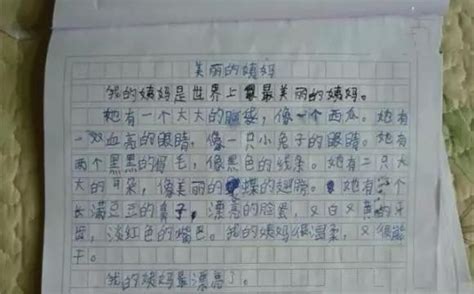 美丽的姨妈
我的姨妈是世界上最最美丽的姨妈。
她有一个大大的脑袋,像一个西瓜。她有
一双血亮的眼睛,像一只小兔子的眼睛。她有
两个黑黑的眉毛,像黑色的线条。她有二只大
大的耳朵,像美丽的蝴蝶的翅膀。她有一个
长满豆豆的鼻子,漂亮的脸蛋,又白又黄的牙
齿,淡红色的嘴巴。我的姨妈很温柔,又很能
干。
我的姨妈最漂亮了。